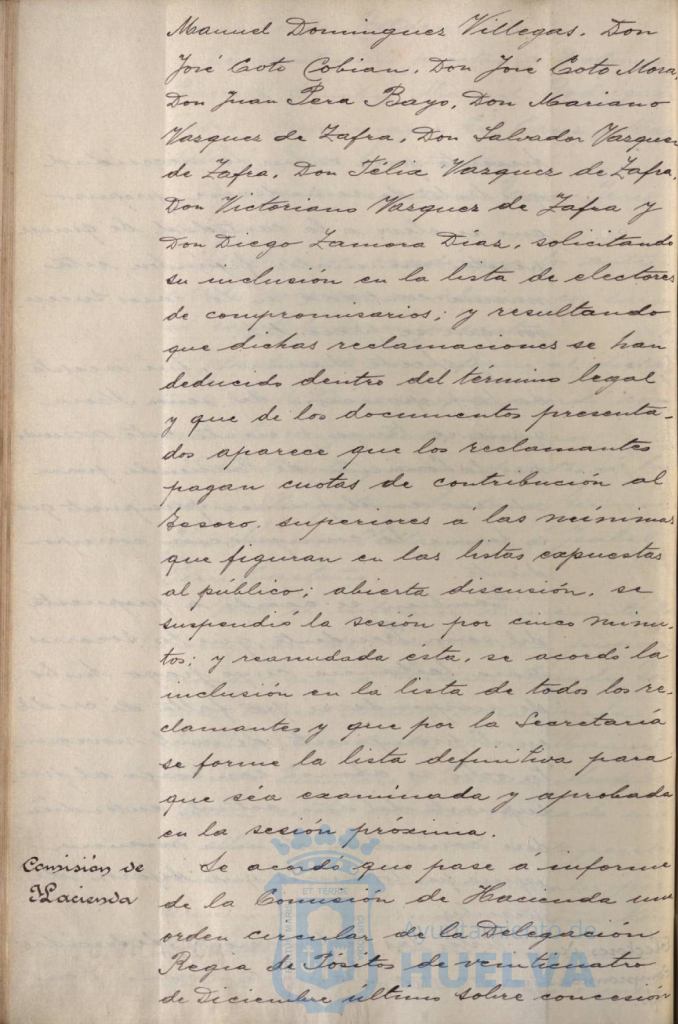 Manuel Dominguez Villegas, Don
José Coto Cobian, Don José Coto Mora,
Don Juan Pera Bayo, Don Mariano
Vazquez de Zafra, Don Salvador Vazquez
de Zafra, Don Félix Vazquez de Zafra,
Don Victoriano Vazquez de Zafra y
Don Diego Zamora Díaz, solicitando
su inclusión en la lista de electores
de compromisarios; y resultando
que dichas reclamaciones se han
deducido dentro del término legal
y que de los documentos presenta-
dos aparece que los reclamantes
pagan cuotas de contribución al
Tesoro, superiores á las mínimas
que figuran en las listas expuestas
al público; abierta discusión, se
suspendió la sesión por cinco minu-
tos; y reanudada ésta, se acordó la
inclusión en la lista de todos los re-
clamantes y que por la Secretaría
se forme la lista definitiva para
que séa examinada y aprobada
en la sesión próxima.
Comisión de
Hacienda
Se acordó que pase á informe
de la Comisión de Hacienda una
orden circular de la Delegación
Regia de Pósitos de veinticuatro
de Diciembre último sobre concesión
Ayuntamiento de
HUELVA